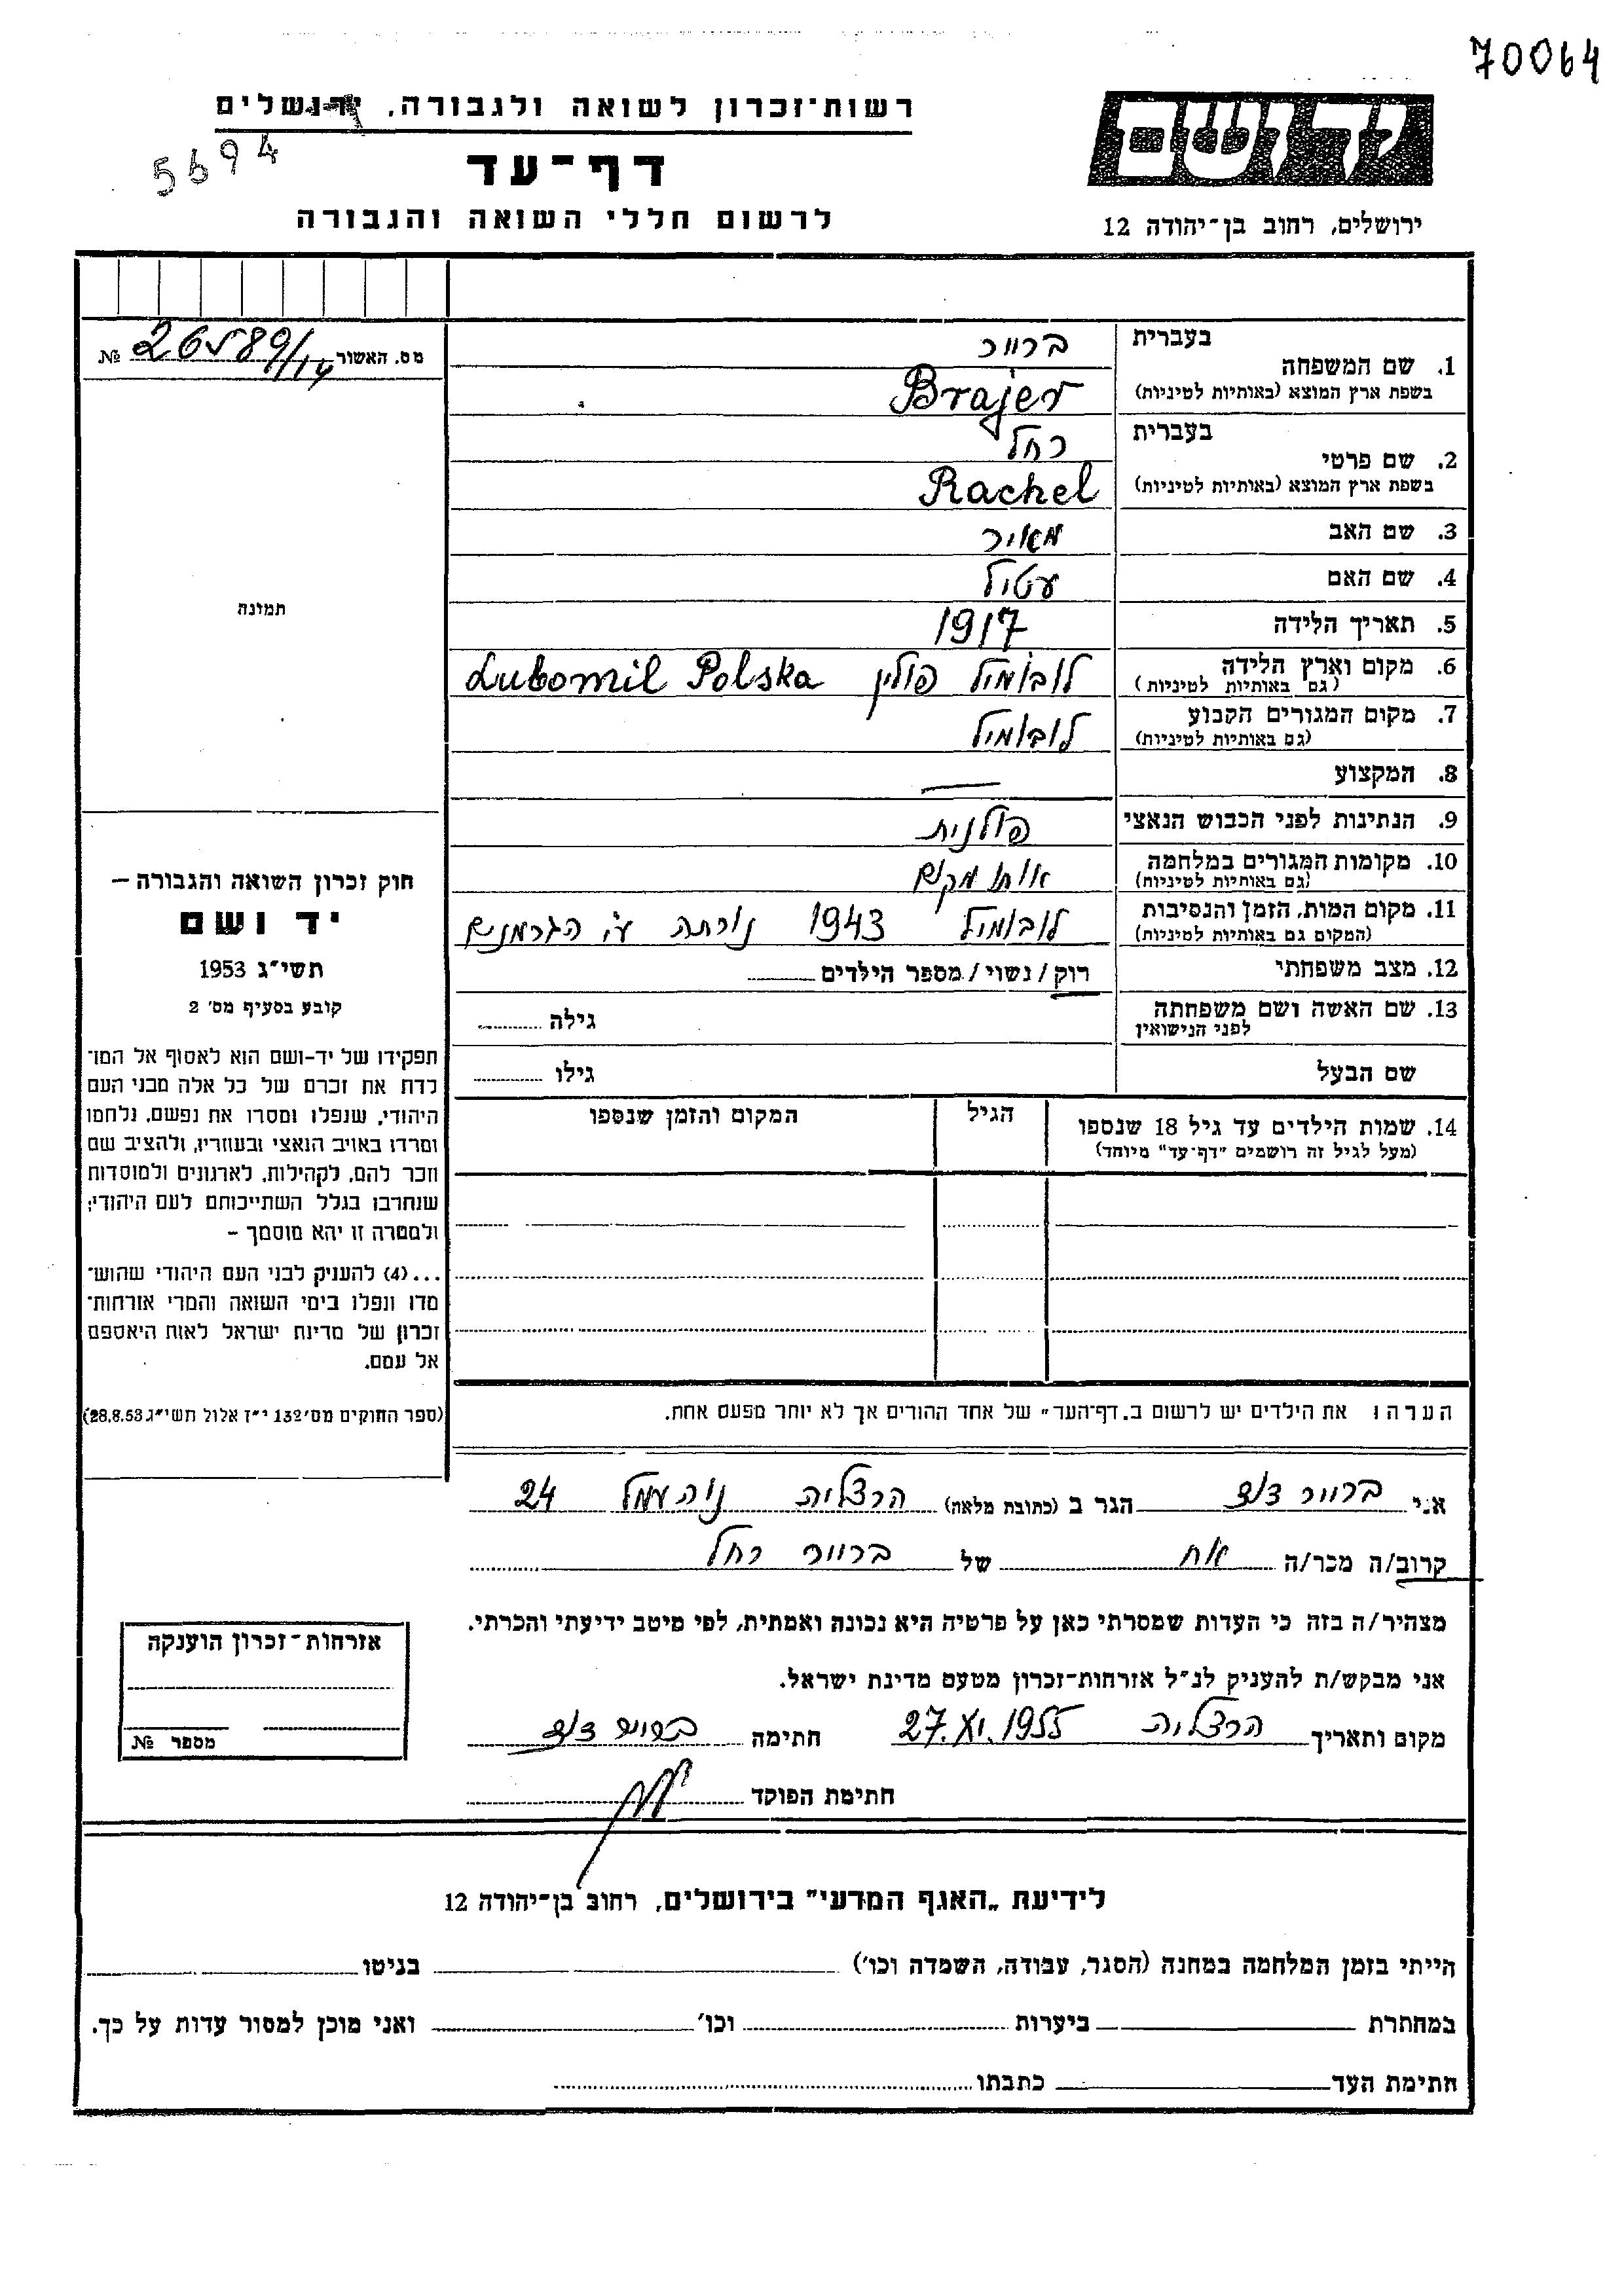 70064
רשות־זכרון לשואה ולגבורה, ירושלים
5694
דף־עד
לרשום חללי השואה והגבורה
יד ושם
ירושלים, רחוב בן־יהודה 12
מס. האשור 26589/14 №
תמונה
חוק זכרון השואה והגבורה –
יד ושם
תשי״ג 1953
קובע בסעיף מס׳ 2
תפקידו של יד-ושם הוא לאסוף אל המו־
לדת את זכרם של כל אלה מבני העם
היהודי, שנפלו ומסרו את נפשם, נלחמו
ומרדו באויב הנאצי ובעוזריו, ולהציב שם
וזכר להם, לקהילות, לארגונים ולמוסדות
שנחרבו בגלל השתייכותם לעם היהודי;
ולמטרה זו יהא מוסמך –
...(4) להעניק לבני העם היהודי שהוש־
מדו ונפלו בימי השואה והמרי אזרחות־
זכרון של מדינת ישראל לאות היאספם
אל עמם.
(ספר החוקים מס׳ 132 י״ז אלול תשי״ג 28.8.53)
בעברית ברויר
1. שם המשפחה
בשפת ארץ המוצא (באותיות לטיניות) Brajer
בעברית רחל
2. שם פרטי
בשפת ארץ המוצא (באותיות לטיניות) Rachel
3. שם האב מאיר
4. שם האם עטיל
5. תאריך הלידה 1917
6. מקום וארץ הלידה לובומיל פולין Lubomil Polska
(גם באותיות לטיניות)
7. מקום המגורים הקבוע לובומיל
(גם באותיות לטיניות)
8. המקצוע —
9. הנתינות לפני הכבוש הנאצי פולנית
10. מקומות המגורים במלחמה אותו מקום
(גם באותיות לטיניות)
11. מקום המות, הזמן והנסיבות לובומיל 1943 נורתה ע״י הגרמנים
(המקום גם באותיות לטיניות)
12. מצב משפחתי רוק / נשוי / מספר הילדים
13. שם האשה ושם משפחתה גילה
לפני הנישואין
שם הבעל גילו
14. שמות הילדים עד גיל 18 שנספו הגיל המקום והזמן שנספו
(מעל לגיל זה רושמים "דף־עד" מיוחד)
הערה: את הילדים יש לרשום ב„דף־העד" של אחד ההורים אך לא יותר מפעם אחת.
אני ברויר דוד הגר ב (כתובת מלאה) הרצליה נוה עמל 24
קרוב/ה מכר/ה אח של ברויר רחל
מצהיר/ה בזה כי העדות שמסרתי כאן על פרטיה היא נכונה ואמתית, לפי מיטב ידיעתי והכרתי.
אני מבקש/ת להעניק לנ״ל אזרחות־זכרון מטעם מדינת ישראל.
מקום ותאריך הרצליה 27.XI.1955 חתימה ברויר דוד
חתימת הפוקד
אזרחות־זכרון הוענקה
מספר №
לידיעת „האגף המדעי" בירושלים, רחוב בן־יהודה 12
הייתי בזמן המלחמה במחנה (הסגר, עבודה, השמדה וכו׳) בגיטו
במחתרת ביערות וכו׳ ואני מוכן למסור עדות על כך.
חתימת העד כתבתו